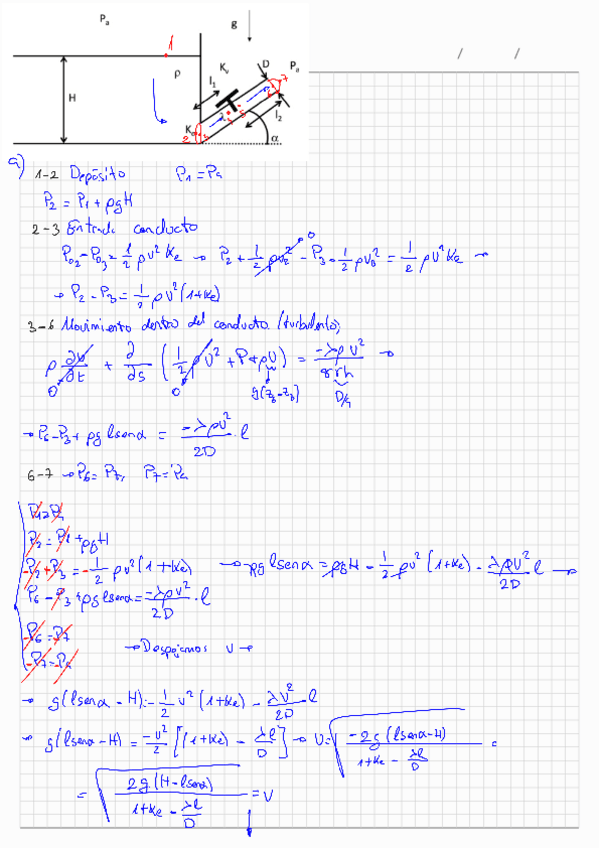 Pa
g
1
ρ
l1
Kv
D
Pa
7
H
2
Ke
l2
α
a)
1-2 Depósito P1=Pa
P2 = P1 + ρgH
2-3 Entrada conducto
P02 - P03 = 1/2 ρv² Ke → P2 + 1/2 ρv2² - P3 - 1/2 ρv3² = 1/2 ρv² Ke →
0
→ P2 - P3 = 1/2 ρv² (1+Ke)
3-6 Movimiento dentro del conducto (turbulento)
ρ ∂v/∂t + ∂/∂s (1/2 ρv² + P + ρU) = -λρv²/8rh →
0 0 g(z6-z3) D/4
→ P6 - P3 + ρg l senα = -λρv²/2D · l
6-7 → P6 = P7, P7 = Pa
P1=Pa
P2 = P1 + ρgH
-P2 + P3 = -1/2 ρv² (1+Ke) → ρg l senα = ρgH - 1/2 ρv² (1+Ke) - λρv²/2D l →
P6 - P3 + ρg l senα = -λρv²/2D · l
-P6 = P7
-P7 = Pa
→ Despejamos v →
→ g(l senα - H) = -1/2 v² (1+Ke) - λv²/2D l
→ g(l senα - H) = -v²/2 [(1+Ke) - λl/D] → v = √(-2g(l senα - H)/(1+Ke - λl/D)) =
= √(2g(H - l senα)/(1+Ke - λl/D)) = v